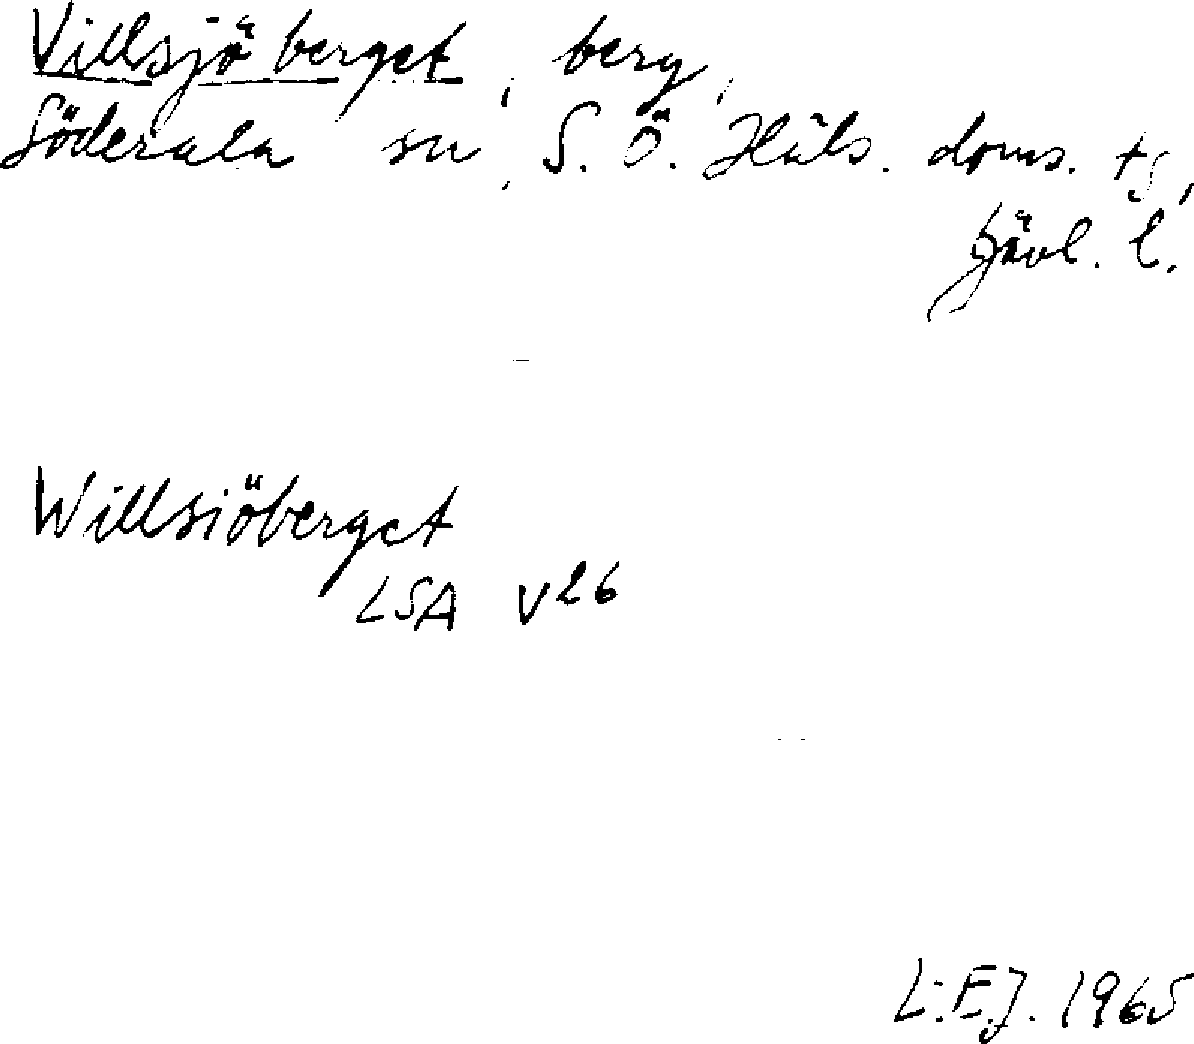 Villsjöberget, berg,
Söderala sn, S. Ö. Häls. doms. ts,
Gävl. l.
Willsiöberget
LSA V26
L.E.J. 1965